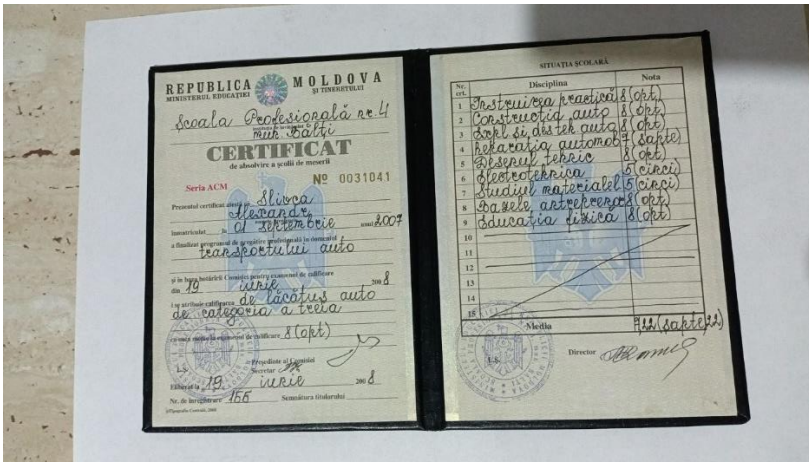 REPUBLICA MOLDOVA
MINISTERUL EDUCAŢIEI ŞI TINERETULUI
Școala Profesională nr. 4
mun. Bălți
CERTIFICAT
de absolvire a şcolii de meserii
Seria ACM Nº 0031041
Prezentul certificat atestă că Slivca
Alexandr
înmatriculat la 01 septembrie anul 2007
a finalizat programul de pregătire profesională în domeniul
transportului auto
şi în baza hotărârii Comisiei pentru examenul de calificare
din 19 iunie 2008
i se atribuie calificarea de lăcătuș auto
de categoria a treia
cu nota medie la examenul de calificare 8 (opt)
L.Ş. Preşedinte al Comisiei
Secretar
Eliberat la 19 iunie 2008
Nr. de înregistrare 155 Semnătura titularului
SITUAŢIA ŞCOLARĂ
Nr. crt. Disciplina Nota
1 Instruirea practică 8 (opt)
2 Construcția auto 8 (opt)
3 Expl și destek auto 8 (opt)
4 Reparația automob 7 (șapte)
5 Desenul tehnic 8 (opt)
6 Electrotehnica 5 (cinci)
7 Studiul materialel 5 (cinci)
8 Bazele antreprenor 8 (opt)
9 Educația fizică 8 (opt)
10
11
12
13
14
15
Media 7,22 (șapte,22)
L.Ş. Director